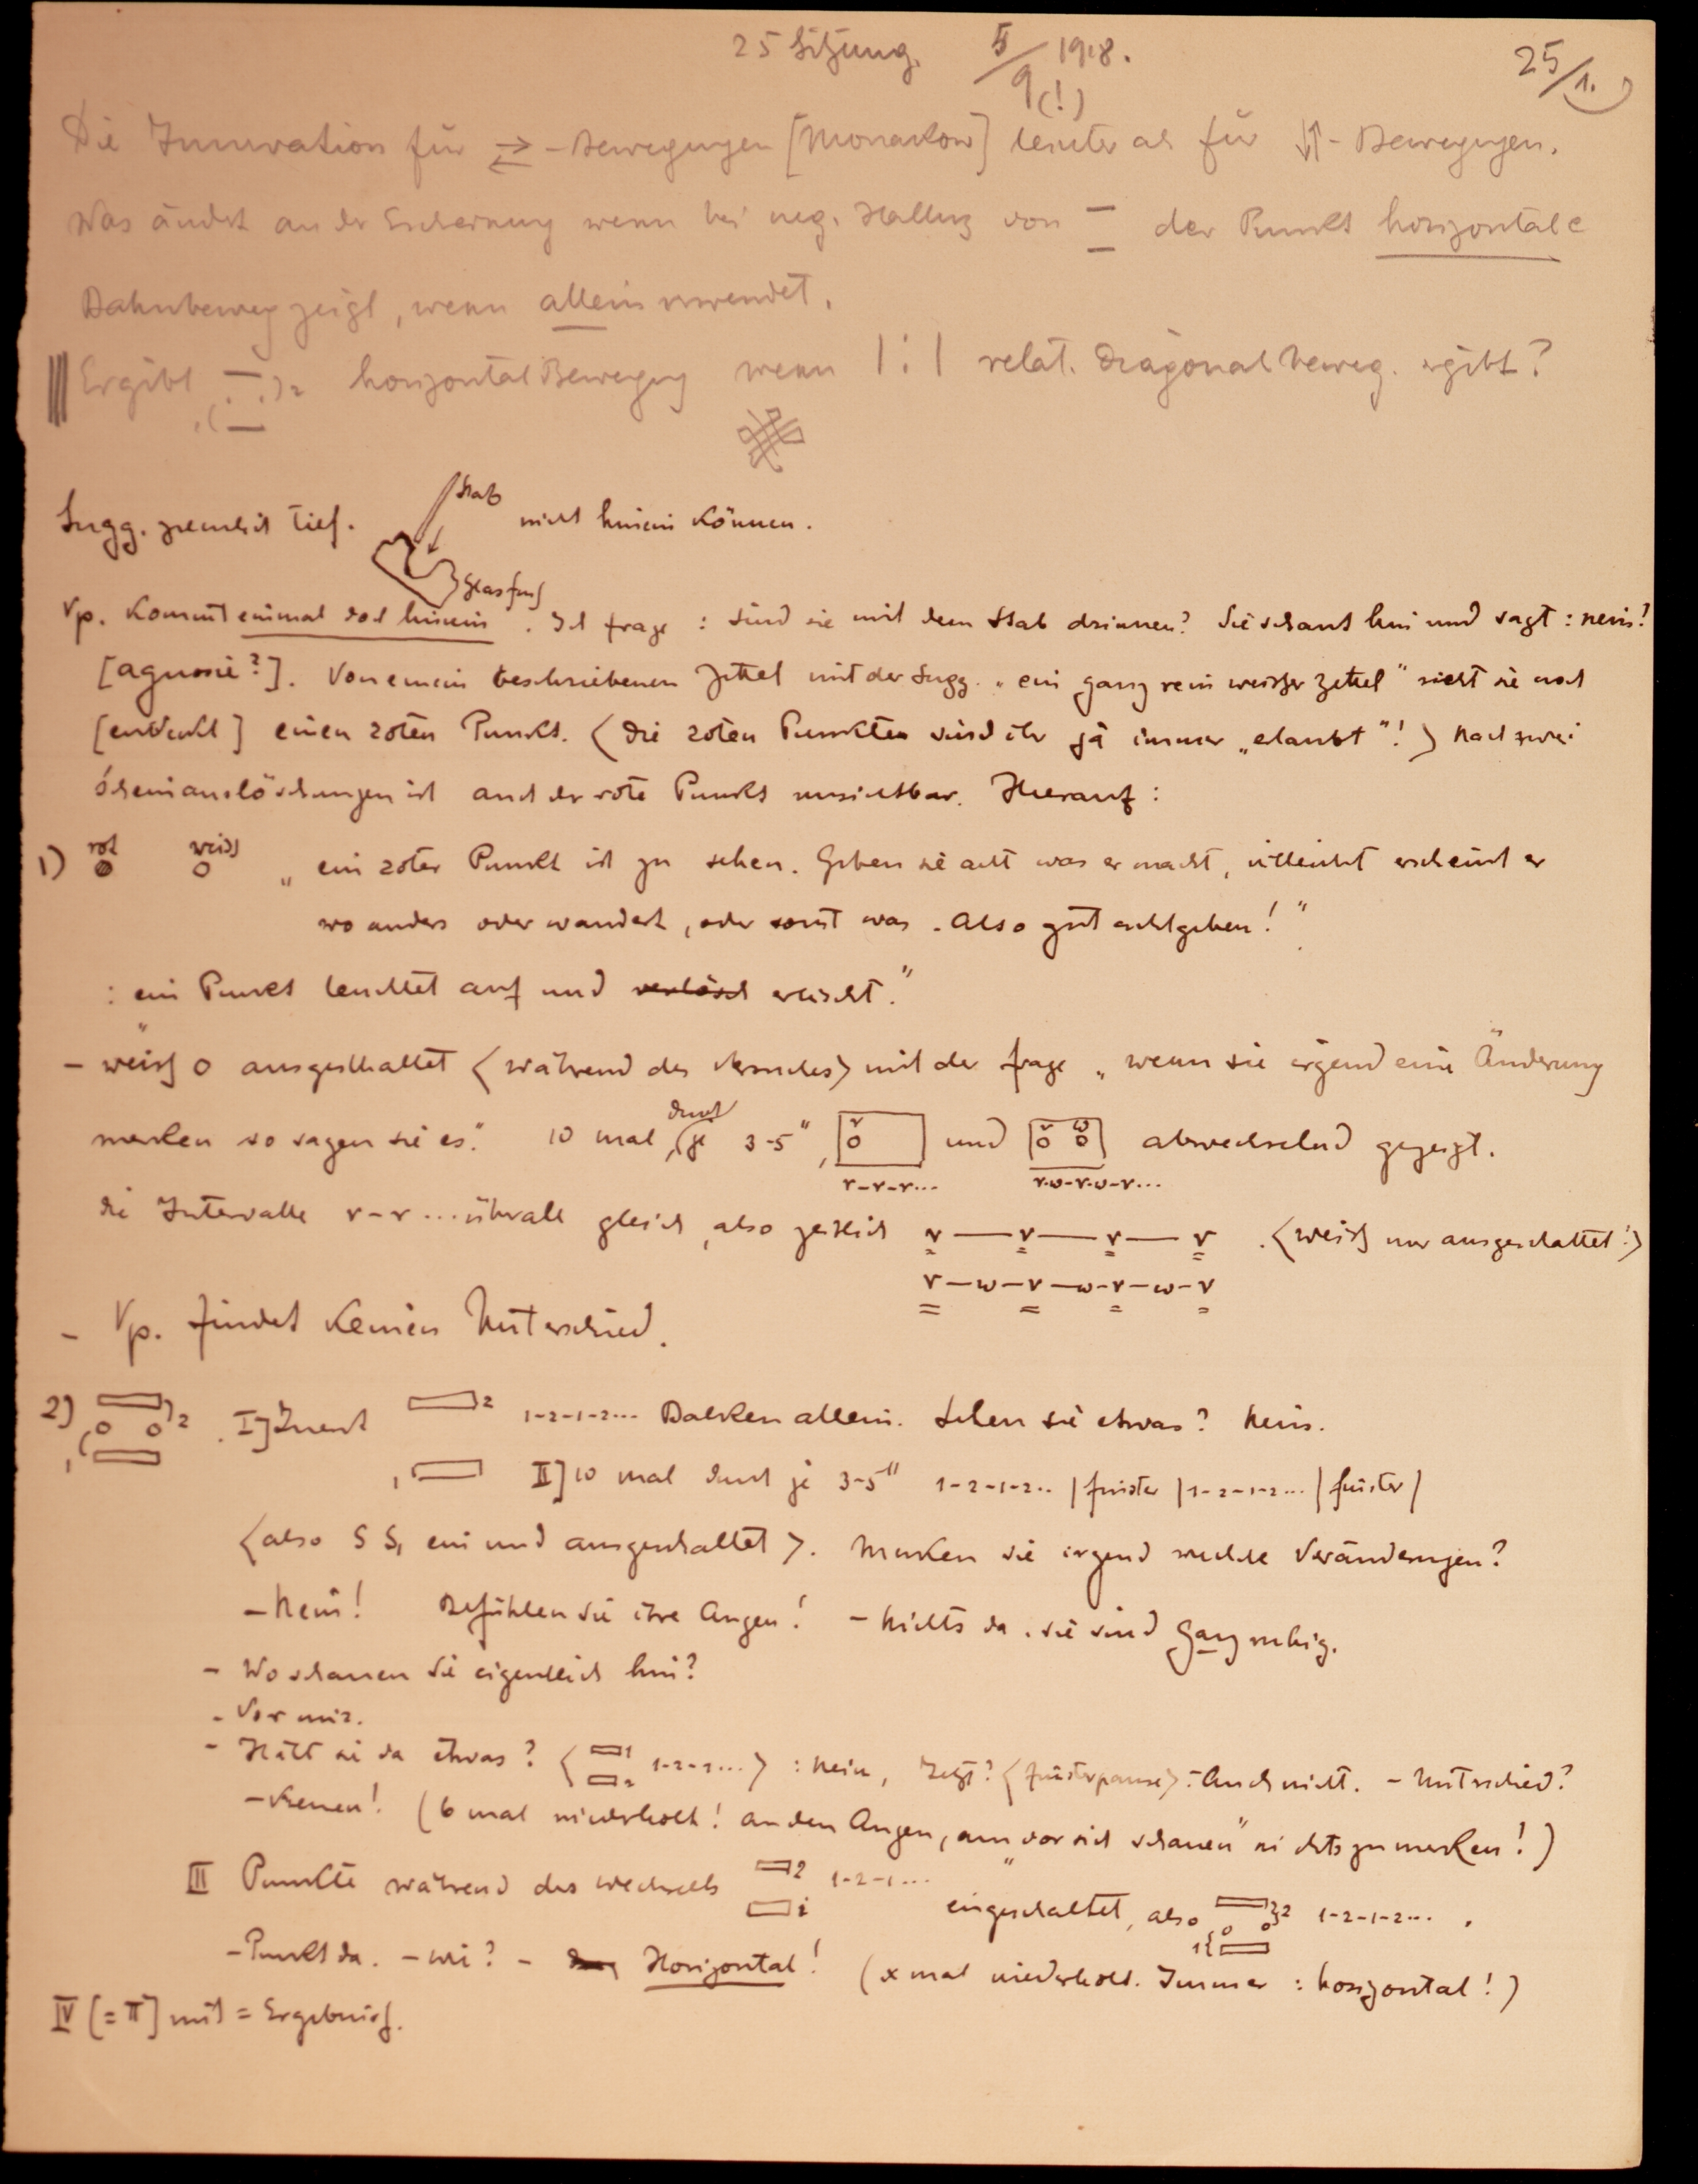 25 Sitzung. 5/9 (!) 1918. 25/1.
Die Innervation für ⇄ - Bewegungen [Monakow] leichter als für ↓↑ - Bewegungen.
Was ändert an der Erscheinung wenn bei neg. Halluz von — — der Punkt horizontale
Bahnbeweg zeigt, wenn allein verwendet.
Ergibt horizontal Bewegung wenn | : | relat. diagonal beweg. ergibt?
Stab
Sugg. ziemlich tief. nicht hinein können.
Glasfuß
Vp. kommt einmal doch hinein. Ich frage: sind sie mit dem Stab drinnen? Sie schaut hin und sagt: nein!
[agnosie?]. Von einem beschriebenen Zettel mit der Sugg. „ein ganz rein weisser Zettel" sieht sie noch
[entdeckt] einen roten Punkt. 〈Die roten Punkte sind ihr ja immer „erlaubt"!〉 Nach zwei
Scheinauslöschungen ist auch der rote Punkt unsichtbar. Hierauf:
1) rot weiss „ein roter Punkt ist zu sehen. Geben sie acht was er macht, vielleicht erscheint er
wo anders oder wandert, oder sonst was. Also gut achtgeben!"
: ein Punkt leuchtet auf und verlösch erlischt."
- weiß o ausgeschaltet 〈während des Versuches〉 mit der Frage „wenn sie irgend eine Änderung
merken so sagen sie es." 10 mal, (durch je 3-5", r o und r o w o abwechselnd gezeigt.
r-r-r... r-w-r-w-r...
die Intervalle r-r... überall gleich, also zeitlich r — r — r — r . 〈weiß nur ausgeschaltet!〉
r — w — r — w — r — w — r
- Vp. findet keinen Unterschied.
2) 1 2 . I] Zuerst 2 1-2-1-2... Balken allein. Sehen sie etwas? Nein.
1 II] 10 mal durch je 3-5" 1-2-1-2.. | finster | 1-2-1-2... | finster |
〈also S S, ein und ausgeschaltet〉. Merken sie irgend welche Veränderungen?
- Nein! Befühlen sie ihre Augen! - Nichts da. sie sind ganz ruhig.
- Wo schauen sie eigentlich hin?
- Vor mir.
- Ist da etwas? 〈1 2 1-2-1...〉 : Nein, Jetzt? 〈Finsterpause〉 : Auch nicht. - Unterschied?
- Keinen! (6 mal wiederholt! an den Augen, am „vor sich schauen" nichts zu merken!)
III Punkte während des wechsels 2 1 1-2-1... eingeschaltet, also 1 2 1-2-1-2... .
- Punkt da. - wie? - Horizontal! (x mal wiederholt. Immer: horizontal!)
IV [= II] mit = Ergebniß.